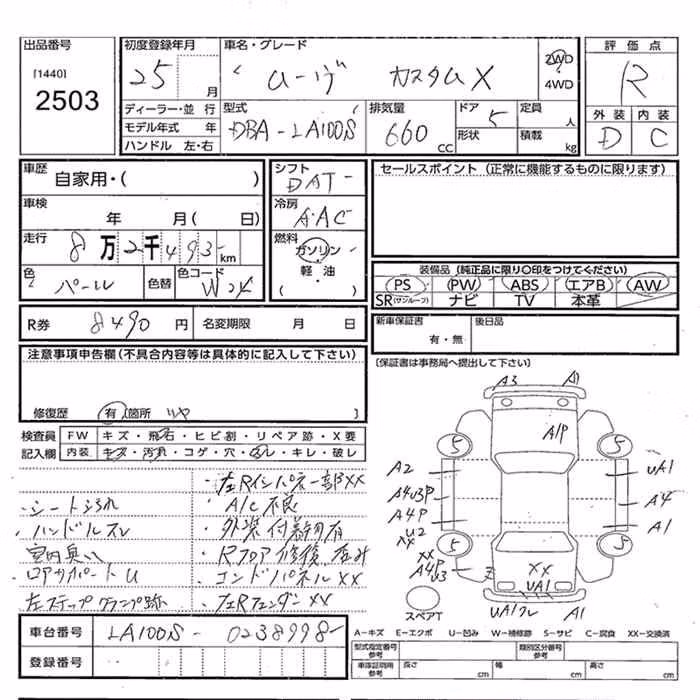 出品番号
[1440]
2503
初度登録年月
25 月
車名・グレード
ムーヴ カスタムX
2WD
4WD
評価点
R
外装 内装
D C
ディーラー・並行
モデル年式 年
ハンドル 左・右
型式
DBA-LA100S
排気量
660 CC
ドア 5
形状
定員 人
積載 kg
車歴
自家用・( )
車検
年 月( 日)
走行
8万2千493 km
色 パール
色替
色コード W24
シフト
DAT
冷房
A・AC
燃料
ガソリン・
軽・油
( )
セールスポイント (正常に機能するものに限ります)
装備品 (純正品に限り○印をつけてください)
PS PW ABS エアB AW
SR(サンルーフ) ナビ TV 本革
R券 8490 円
名変期限 月 日
新車保証書
有・無
後日品
[保証書は事務局へ提出して下さい]
注意事項申告欄(不具合内容等は具体的に記入して下さい)
修復歴 有[箇所 ]
検査員
記入欄
FW キズ・飛石・ヒビ割・リペア跡・X要
内装 キズ・汚れ・コゲ・穴・ハレ・キレ・破レ
・左Rインパネ一部XX
・シート汚れ
・A/C不良
・ハンドルスレ
・外装付着物有
室内臭い
・Rフロア修復歪み
・ロアサポートU
・コンドパネルXX
左ステップクランプ跡
・左RフェンダーXX
A3 A1
A/P
5 5
A2 UA1
A4U3P A4
A4P A1
U2
XX
5 5
XX
A4P U3
XX
UA1
UA1ワレ A1
スペアT
A-キズ E-エクボ U-凹み W-補修跡 S-サビ C-腐食 XX-交換済
車台番号
LA100S-0238998
登録番号
型式指定番号
参考
類別区分番号
参考
車体証明用
参考
長さ cm
幅 cm
高さ cm